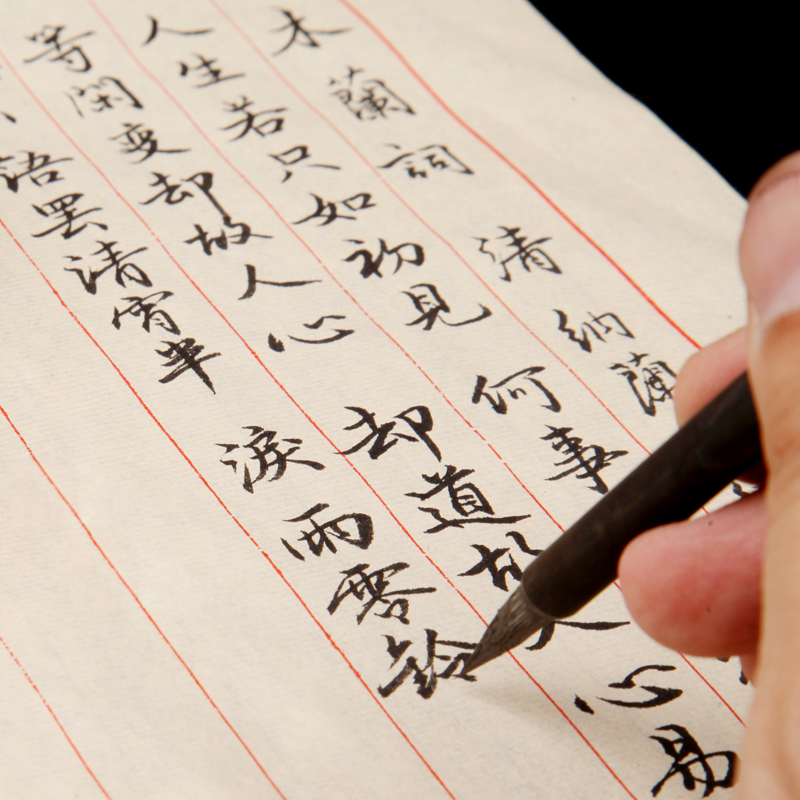 木蘭詞 清 納蘭
人生若只如初見 何事
等閑变却故人心 却道故人心易
語罢清宵半 淚雨零鈴